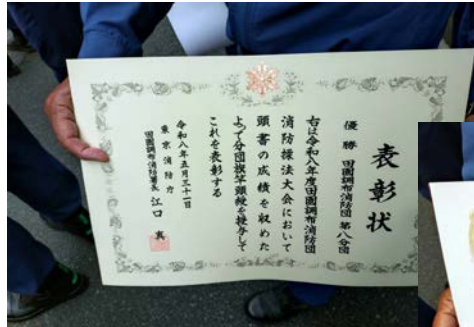 表彰状
優勝 田園調布消防団 第八分団
右は令和八年度田園調布消防団
消防操法大会において
頭書の成績を収めた
よって分団旗竿頭綬を授与して
これを表彰する
令和八年五月三十一日
東京消防庁
田園調布消防署長 江口 真